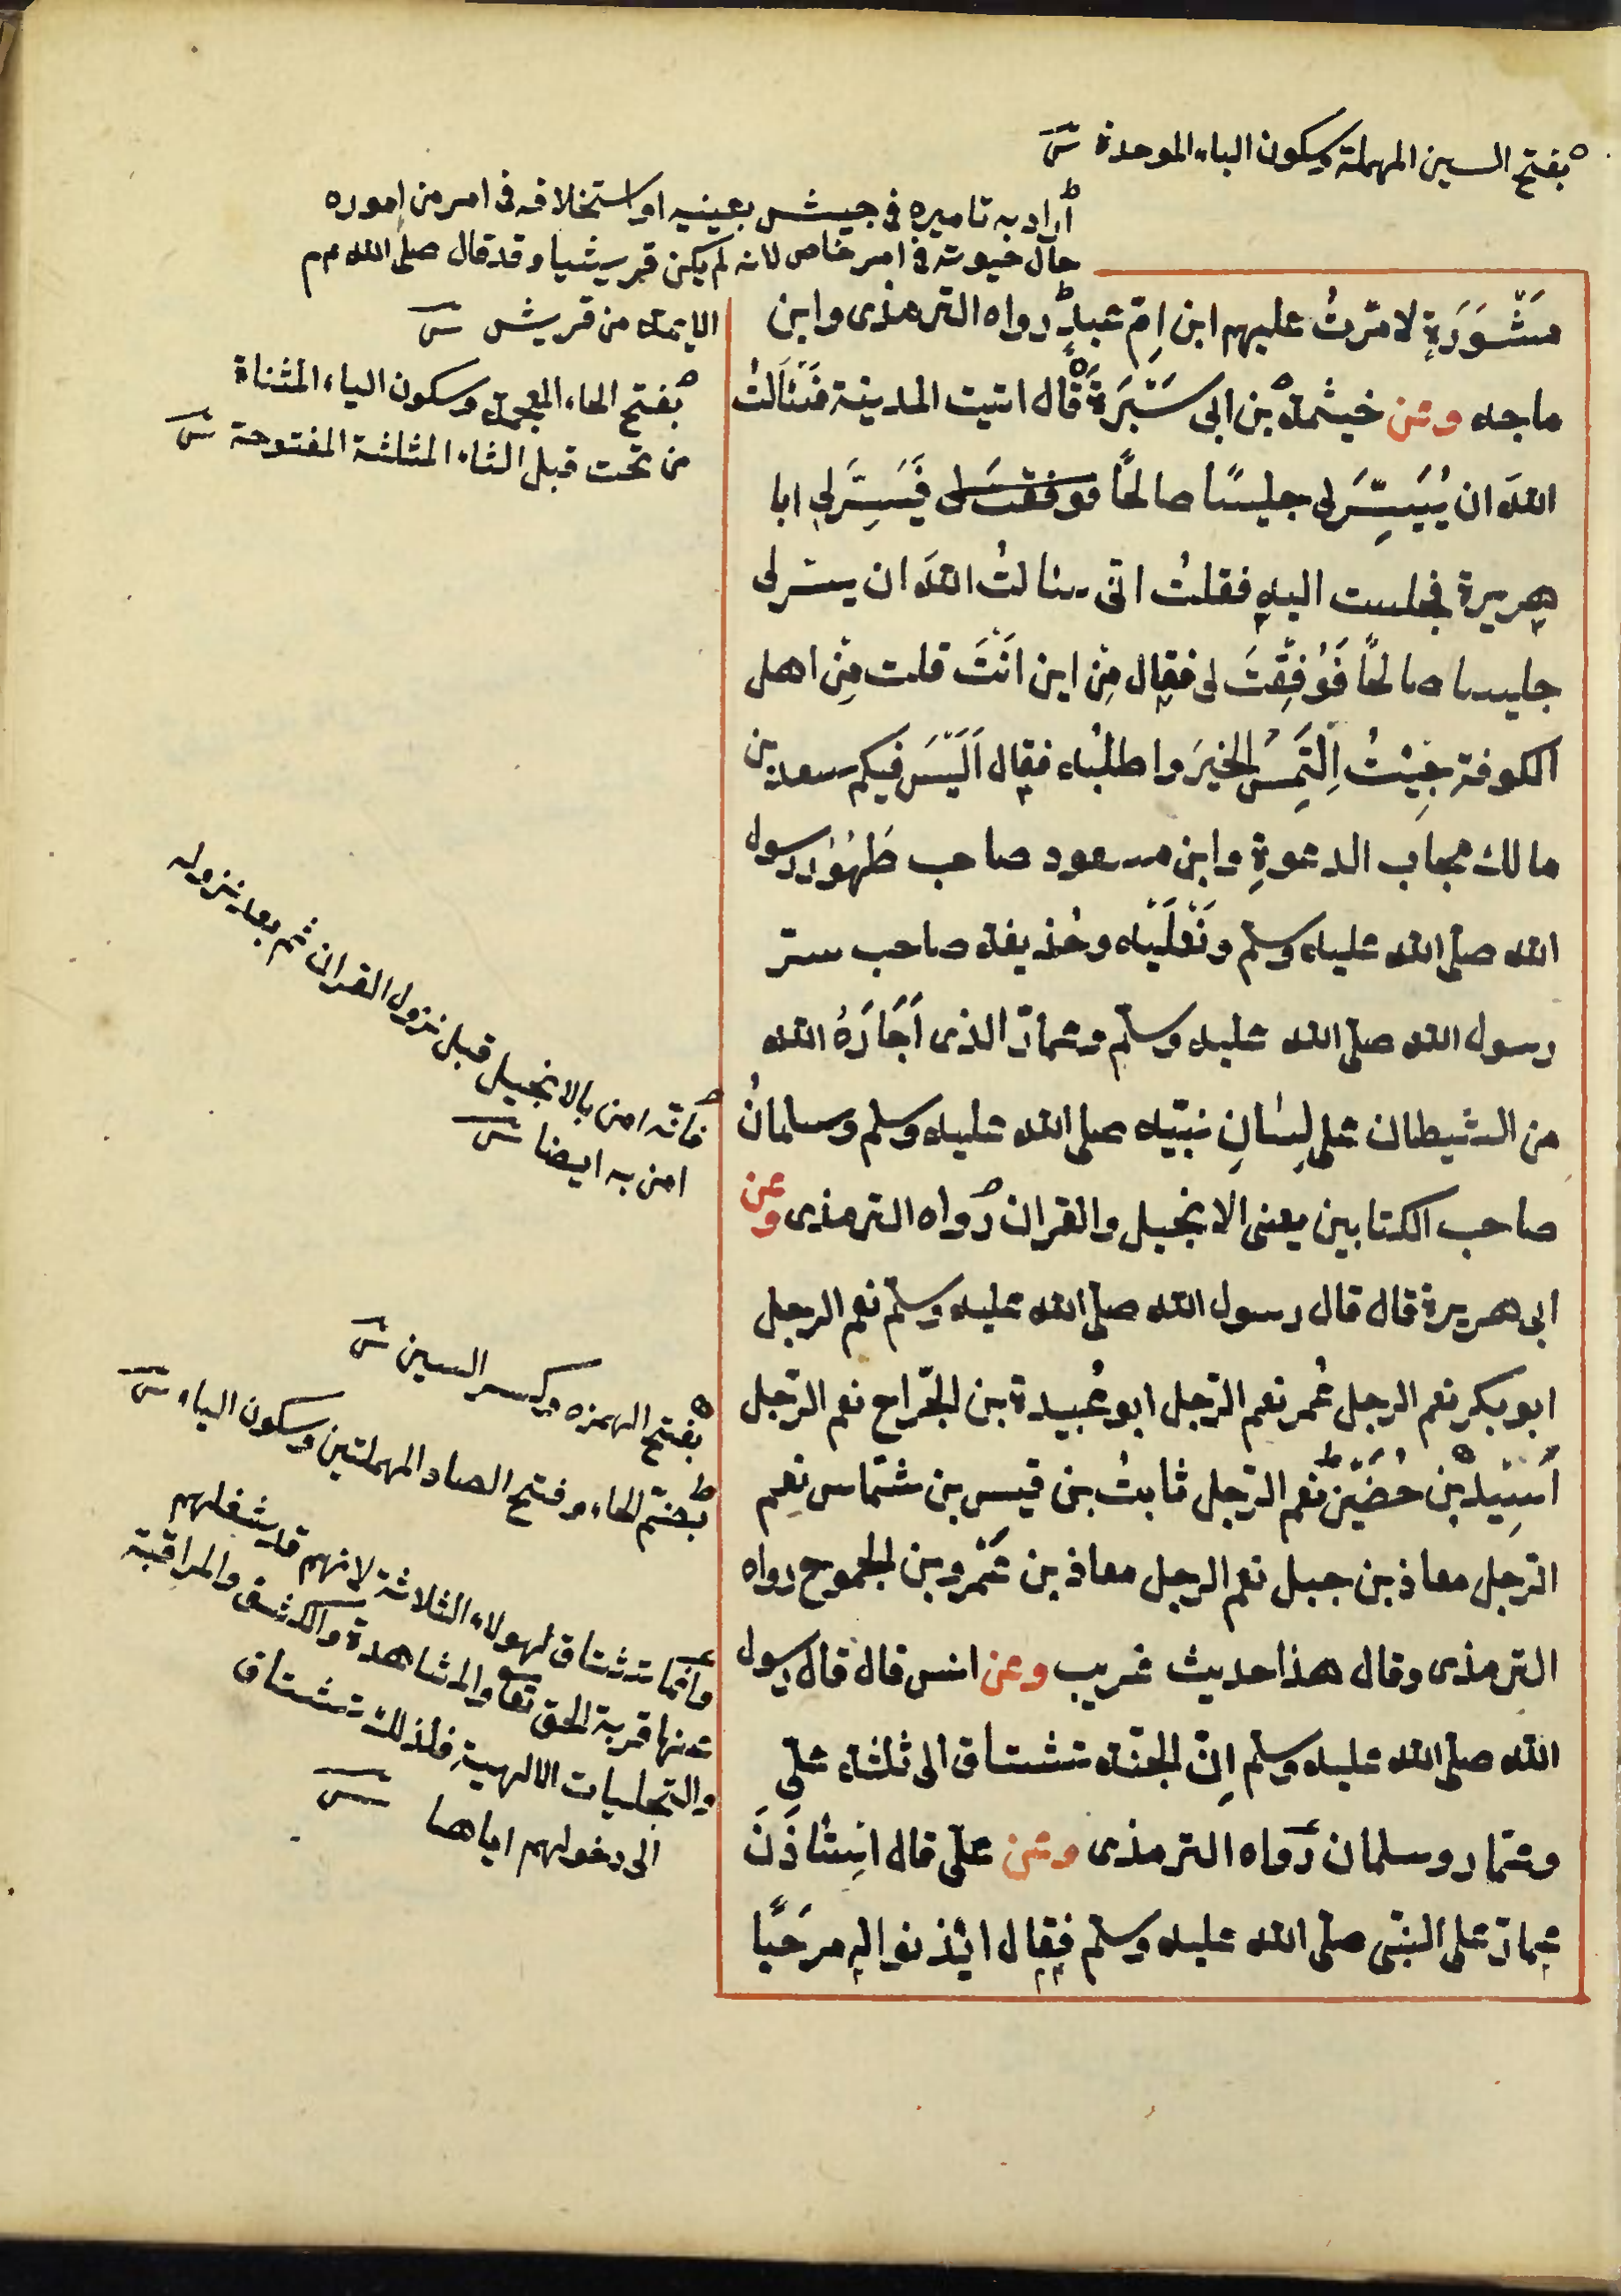 بفتح السين المهملة وسكون الباء الموحدة ش
أراد به تاميره فى جيش بعينه او استخلافه فى امر من اموره
حال حيوته فى امر خاص لانه لم يكن قريشيا وقد قال صلى الله مم
الايمه من قريش ش
بفتح الخاء المعجمة وسكون الياء المثناة
من تحت قبل الثاء المثلثة المفتوحة ش
مَشْوَرَةٍ لامّرتُ عليهم ابن اِمّ عبدٍ رواه الترمذى وابن
ماجه وعن خيثمة بن ابى سَبْرَةَ قال اتيت المدينة فَسْئَالتُ
اللهَ ان يُيَسِّرَ لى جليسًا صالحًا فوفقت لى فَيَسَّرَ لى ابا
هريرة فجلست اليه فقلتُ انى سئالتُ اللهَ ان ييسر لى
جليسا صالحًا فَوُفِّقْتَ لى فقال مِنْ اين اَنْتَ قلت مِنْ اهل
الكوفة جِئْتُ اِلْتَمِسُ الخيرَ واطلبُه فقال اَلَيْسَ فيكم سعد بن
مالك مجاب الدعوةِ وابن مسعود صاحب طَهُوْر رسول
الله صلى الله عليه وسلم ونَعْلَيْه وحُذيفة صاحب ستر
رسول الله صلى الله عليه وسلم وعمار الذى اَجَارَهُ الله
من الشيطان على لِسَانِ نبيّه صلى الله عليه وسلم وسلمانُ
صاحب الكتابين يعنى الانجيل والقران رواه الترمذى وعن
ابى هريرة قال قال رسول الله صلى الله عليه وسلم نعم الرجل
ابو بكر نعم الرجل عُمر نعم الرّجل ابو عُبيدة بن الجَرّاح نعم الرّجل
اَسِيْد بن حُضَيْن نعم الرّجل ثابتُ بن قيس بن شمّاس نعم
الرّجل معاذ بن جبل نعم الرجل معاذ بن عَمْرو بن الجموح رواه
الترمذى وقال هذا حديث غريب وعن انس قال قال رسول
الله صلى الله عليه وسلم اِنّ الجنّة تشتاق الى ثلثة على
وعمّار وسلمان رواه الترمذى وعن علىّ قال اسْتَاذَنَ
عمار على النبى صلى الله عليه وسلم فقال ائذنوا له مرحَبًا
فانه امن بالانجيل قبل نزول القران ثم بعد نزوله
امن به ايضا ش
بفتح الهمزه وكسر السين ش
بضم الحاء وفتح الصاد المهملتين وسكون الياء ش
وانما تشتاق لهولاء الثلاثة لانهم قد شغلهم
عنها قربة الحق تعا والمشاهدة والكشف والمراقبة
والتجليات الالهية فلذلك تشتاق
الى دخولهم اياها ش